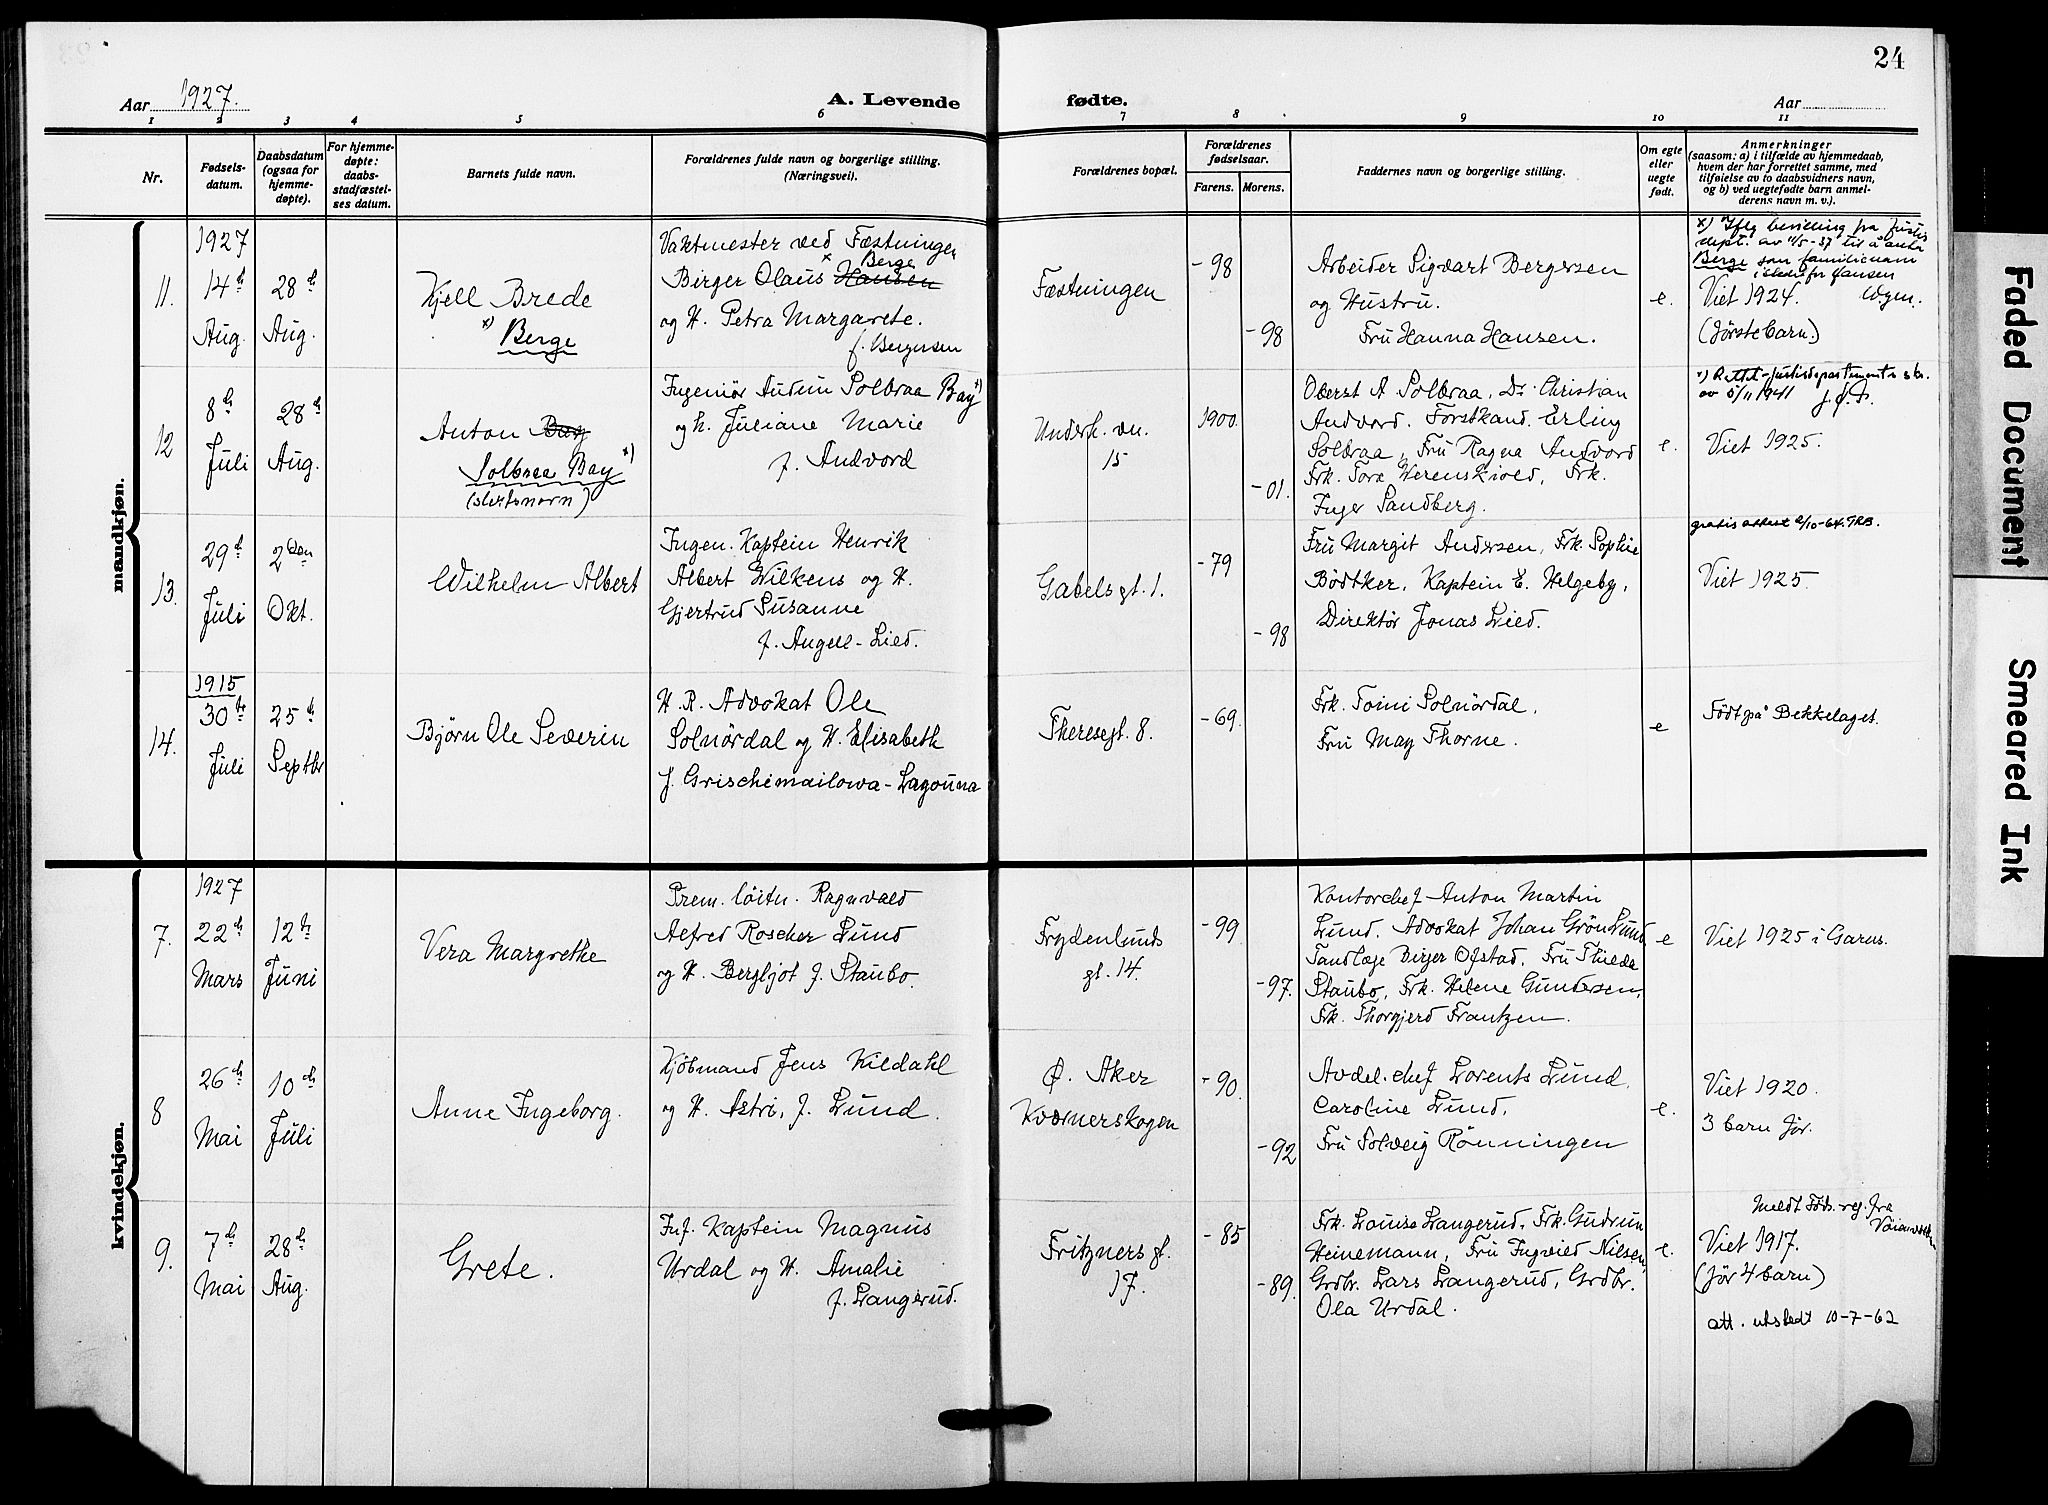 24
Aar 1927.
A. Levende fødte.
Aar
1 2 3 4 5 6 7 8 9 10 11
Nr.
Fødsels-
datum.
Daabsdatum
(ogsaa for
hjemme-
døpte).
For hjemme-
døpte:
daabs-
stadfæstel-
ses datum.
Barnets fulde navn.
Forældrenes fulde navn og borgerlige stilling.
(Næringsvei).
Forældrenes bopæl.
Forældrenes
fødselsaar.
Farens. Morens.
Faddernes navn og borgerlige stilling.
Om egte
eller
uegte
født.
Anmerkninger
(saasom: a) i tilfælde av hjemmedaab,
hvem der har forrettet samme, med
tilføielse av to daabsvidners navn,
og b) ved uegtefødte barn anmel-
derens navn m. v.).
mandkjøn.
11.
1927
14de
Aug.
28de
Aug.
Kjell Brede
x) Berge
Vaktmester ved Fæstningen
x Berge
Birger Olaus Hansen
og H. Petra Margarete.
f. Bergersen
Fæstningen
-98
-98
Arbeider Sigvart Bergersen
og Hustru.
Fru Hanna Hansen.
e.
x) Iflg bevilling fra Justis
dept. av 11/5-37 til å anta
Berge som familienavn
i stedet for Hansen
Viet 1924.
(første barn.)
12
8de
Juli
28de
Aug.
Anton Bay
Solbraa Bay x)
(slektsnavn)
Ingeniør Audun Solbraa Bay x)
og h. Juliane Marie
f. Andvord
Underh. vn.
15
1900.
-01.
Oberst A Solbraa, Dr. Christian
Andvord. Forstkand. Erling
Solbraa, Fru Ragna Andvord
Frk. Tora Werenskiold, Frk.
Inger Sandberg.
e.
x) Rettet Justisdepartementets skr.
av 5/11 1941
Viet 1925.
13.
29de
Juli
2den
Okt.
Wilhelm Albert
Ingen. Kaptein Henrik
Albert Wilkens og H.
Gjertrud Susanne
f. Angell-Lied.
Gabelsgt. 1.
-79
-98
Fru Margit Andersen, Frk. Sophie
Bødtker, Kaptein E. Helgeby,
Direktør Jonas Lied.
gratis attest 2/10-64. TRB.
Viet 1925.
14.
1915
30te
Juli
25de
Septbr
Bjørn Ole Severin
H. R. Advokat Ole
Solnørdal og H. Elisabeth
f. Grischimailowa-Lagouna
Theresegt. 8.
-69.
Frk. Toini Solnørdal.
Fru May Thorne.
e
Født på Bekkelaget.
kvindekjøn.
7.
1927
22de
Mars
12te
Juni
Vera Margrethe
Prem. løitn. Ragnvald
Alfred Roscher Lund
og H. Bergljot f. Staubo.
Frydenlunds
gt. 14.
-99
-97.
Kontorchef Anton Martin
Lund. Advokat Johan Grøn Lund,
Tandlæge Birger Ofstad. Fru Thilda
Staubo, Frk. Helene Gundersen,
Frk. Thorgjerd Frantzen.
e
Viet 1925 i Garns.
8
26de
Mai
10de
Juli
Anne Ingeborg.
Kjøbmand Jens Kildahl
og H. Astri, f. Lund.
Ø. Aker
Kværnerskogen
-90.
-92
Avdel. chef Lorents Lund.
Caroline Lund.
Fru Solveig Rønningen
e.
Viet 1920.
3 barn før.
9.
7de
Mai
28de
Aug.
Grete.
Inf. Kaptein Magnus
Urdal og H. Amalie
f. Langerud.
Fritzners gt.
17.
-85
-89.
Frk. Louise Langerud. Frk. Gudrun
Heinemann, Fru Ingvild Nilsen,
Grdbr. Lars Langerud, Grdbr.
Ola Urdal.
e.
Meldt Føds.reg. fra
Viet 1917.
(før 4 barn)
att. utstedt 10-7-62
Faded Document
Smeared Ink